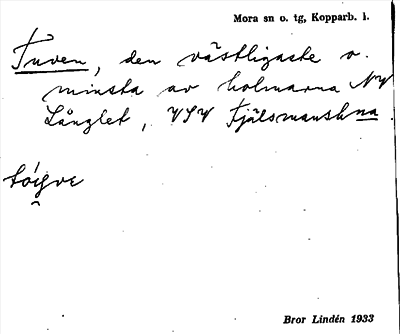 Mora sn o. tg, Kopparb. l.
Tuven, den västligaste o.
minsta av holmarna NV
Långlet, VSV Fjälsmansudna.
Bror Lindén 1933